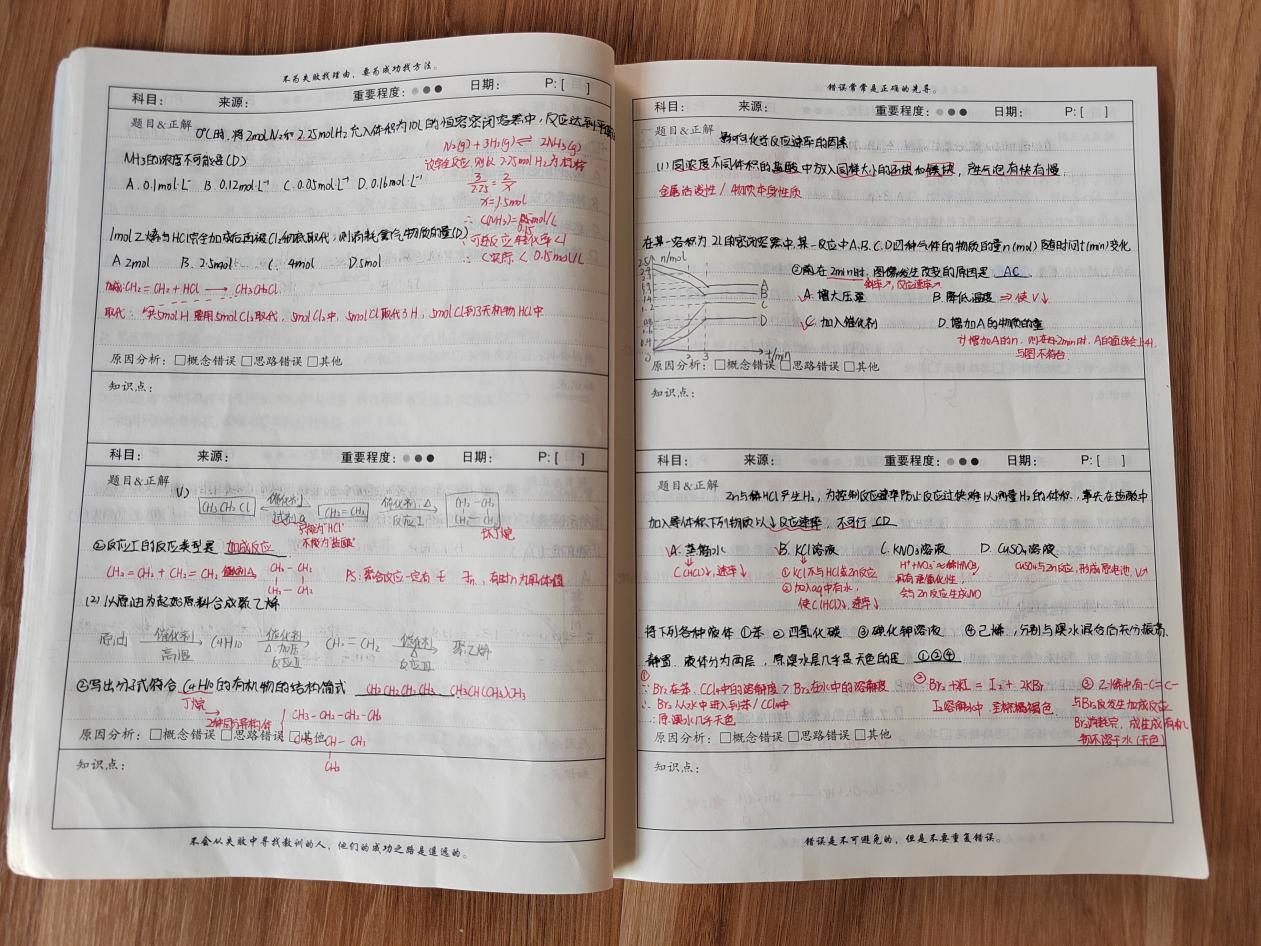 不为失败找理由，要为成功找方法。
科目： 来源： 重要程度： 日期： P:[ ]
题目&正解 0℃时，将2molN₂和2.25molH₂充入体积为10L的恒容密闭容器中，反应达到平衡
N₂(g)+3H₂(g)⇌2NH₃(g)
NH₃的浓度不可能是(D)
A.0.1mol·L⁻¹ B.0.12mol·L⁻¹ C.0.05mol·L⁻¹ D.0.16mol·L⁻¹
3/2.25=2/x
x=1.5mol
∴ C(NH₃)=0.15mol/L
1mol乙烯与HCl完全加成后再被Cl₂彻底取代，则消耗氯气物质的量(D)
∵可逆反应，转化率<1
A 2mol B. 2.5mol C. 4mol D.5mol
∴ C实际<0.15mol/L
加成：CH₂=CH₂+HCl⟶CH₃CH₂Cl
取代：5molH需用5molCl₂取代，5molCl₂中，5molCl取代5H，5molCl到5无机物HCl中
原因分析：□概念错误 □思路错误 □其他
知识点：
科目： 来源： 重要程度： 日期： P:[ ]
题目&正解
(1) CH₃CH₂Cl 催化剂 试剂a CH₂=CH₂ 催化剂、△ 反应I CH₂-CH₂ CH₂-CH₂
只能为"HCl"
不能为"盐酸"
环丁烷
②反应I的反应类型是 加成反应
CH₂=CH₂+CH₂=CH₂ 催化剂△ CH₂-CH₂ CH₂-CH₂
PS：聚合反应一定有 n，有时n为具体值
(2) 以原油为起始原料合成聚乙烯
原油 催化剂 高温 C4H10 催化剂 △.加压 反应II CH₂=CH₂ 催化剂 △ 反应III 聚乙烯
②写出分子式符合C4H10的有机物的结构简式 CH₃CH₂CH₂CH₃ CH₃CH(CH₃)CH₃
丁烷
2种同分异构体 CH₃-CH₂-CH₂-CH₃
原因分析：□概念错误 □思路错误 □其他
CH₃
知识点：
不会从失败中寻找教训的人，他们的成功之路是遥远的。
错误常常是正确的先导。
科目： 来源： 重要程度： 日期： P:[ ]
题目&正解 影响化学反应速率的因素
(1) 同浓度不同体积的盐酸中放入同样大小的锌块和镁块，产生气泡有快有慢：
金属活泼性/物质本身性质
在某一容积为2L的密闭容器中，某一反应中A、B、C、D四种气体的物质的量n(mol)随时间t(min)变化
n/mol
A
B
C
D
2 3 t/min
②图在2min时，图像发生改变的原因是 AC
斜率↗，反应速率↗
A.增大压量 B.降低温度⇒使V↓
C.加入催化剂 D.增加A的物质的量
若增加A的n，则在2min时，A的曲线会上升，
与图不符合.
原因分析：□概念错误 □思路错误 □其他
知识点：
科目： 来源： 重要程度： 日期： P:[ ]
题目&正解 Zn与稀HCl产生H₂，为控制反应速率防止反应过快难以测量H₂的体积，事先在盐酸中
加入等体积下列物质以↓反应速率，不可行 CD
A.蒸馏水 B.KCl溶液 C.KNO₃溶液 D.CuSO₄溶液
C(HCl)↓，速率↓
①KCl不与HCl或Zn反应
②加入aq中有水，
使C(HCl)↓，速率↓
H⁺+NO₃⁻≈稀HNO₃
具有强氧化性，
会与Zn反应生成NO
CuSO₄与Zn反应，形成原电池，V↗
将下列各种液体 ①苯 ②四氯化碳 ③碘化钾溶液 ④己烯，分别与溴水混合后充分振荡.
静置，液体分为两层，原溴水层几乎呈无色的是 ①②④
①
∵Br₂在苯、CCl₄中的溶解度>Br₂在水中的溶解度
∴Br₂从水中进入到苯/CCl₄中
∴原溴水几乎无色
② Br₂+2KI=I₂+2KBr
I₂溶解水中 呈棕褐色
③乙烯中有-C=C-
与Br₂反发生加成反应
Br₂消耗完，成生成有机
物不溶于水(无色)
原因分析：□概念错误 □思路错误 □其他
知识点：
错误是不可避免的，但是不要重复错误。